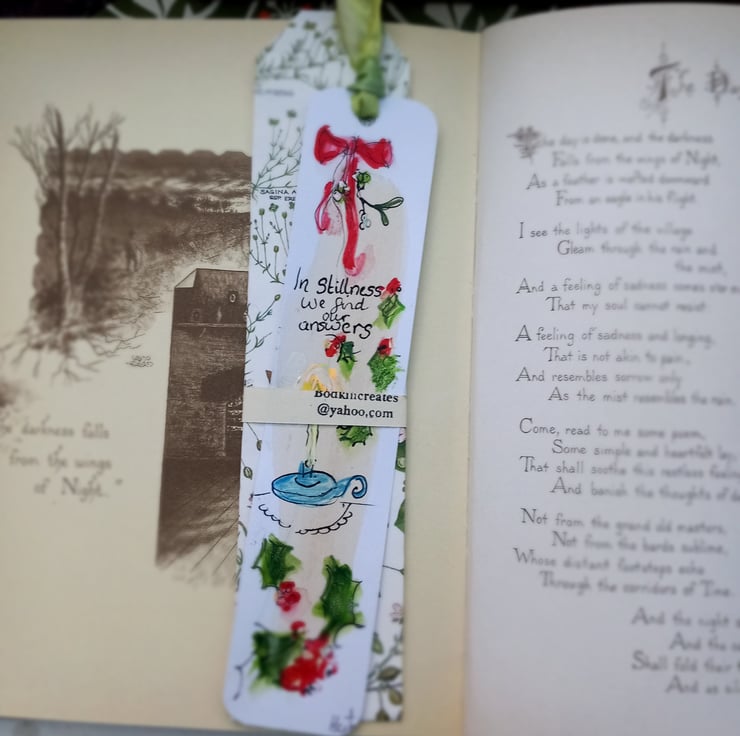 "darkness falls
from the wings
of Night."
SAGINA A
In Stillness
we find
our
answers
Bodkincreates
@yahoo,com
The Da
The day is done, and the darkness
Falls from the wings of Night,
As a feather is wafted downward
From an eagle in his flight.
I see the lights of the village
Gleam through the rain and
the mist,
And a feeling of sadness comes o'er m
That my soul cannot resist:
A feeling of sadness and longing,
That is not akin to pain,
And resembles sorrow only
As the mist resembles the rain.
Come, read to me some poem,
Some simple and heartfelt lay,
That shall soothe this restless feelin
And banish the thoughts of d
Not from the grand old masters,
Not from the bards sublime,
Whose distant footsteps echo
Through the corridors of Time.
And the night
And the ca
Shall fold their t
And as sil